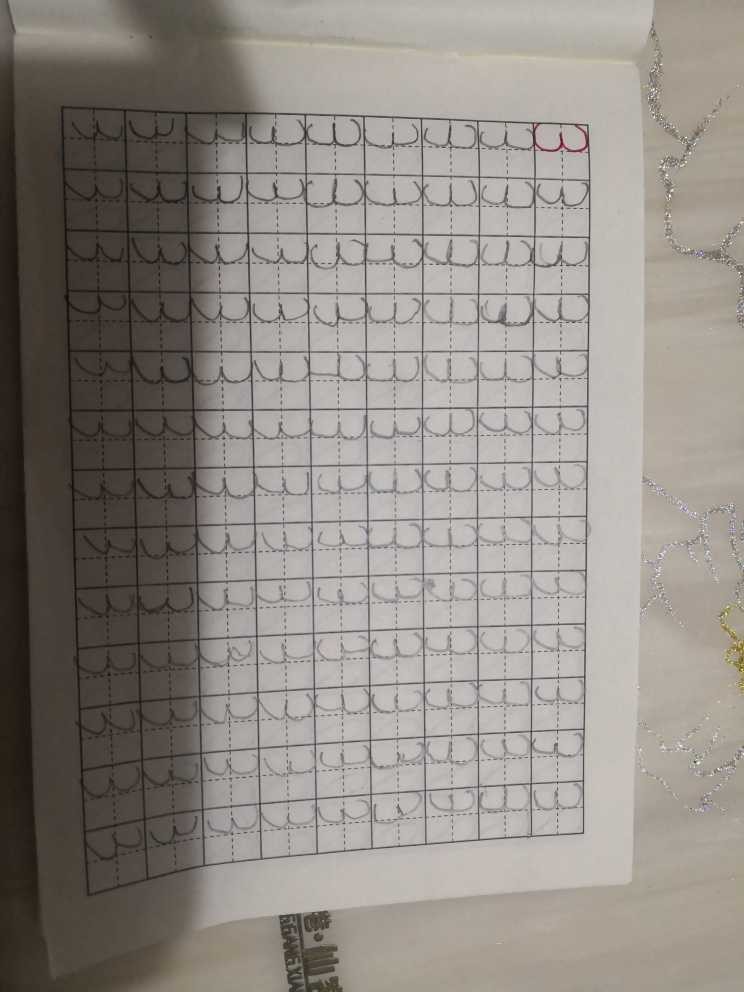 3 3 3 3 3 3 3 3 3 3 3 3 3
3 3 3 3 3 3 3 3 3 3 3 3 3
3 3 3 3 3 3 3 3 3 3 3 3 3
3 3 3 3 3 3 3 3 3 3 3 3 3
3 3 3 3 3 3 3 3 3 3 3 3 3
3 3 3 3 3 3 3 3 3 3 3 3 3
3 3 3 3 3 3 3 3 3 3 3 3 3
3 3 3 3 3 3 3 3 3 3 3 3 3
3 3 3 3 3 3 3 3 3 3 3 3 3